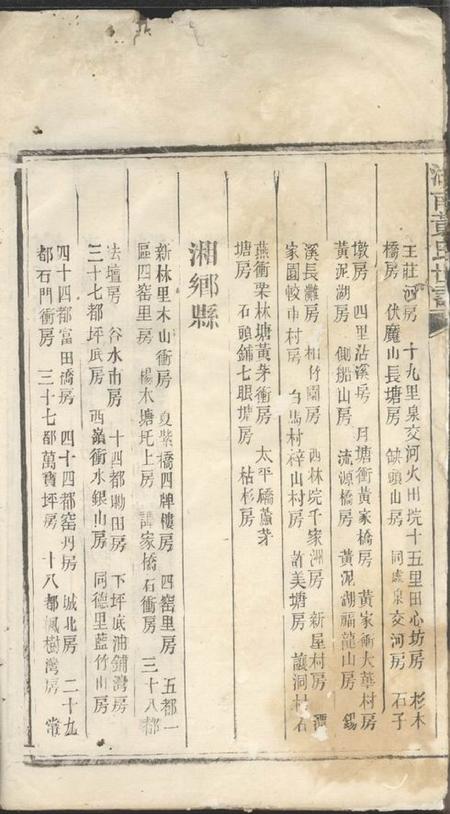 湖南黃氏世譜
王莊河房 十九里泉交河火田垸十五里田心坊房 杉木
橋房 伏魔山長塘房 缺頭山房 同處泉交河房 石子
墩房 四里沾溪房 月塘衝黃家橋房 黃家衝大華村房
黃泥湖房 側船山房 流源橋房 黃泥湖福龍山房 錫
溪長灘房 和竹園房 西林垸千家洲房 新屋村房 潭
家園較中村房 白馬村梓山村房 許美塘房 讓洞村石
燕衝栗林塘黃芽衝房 太平橋蘆芽
塘房 石頭鋪七眼塘房 枯杉房
湘鄉縣
新林里木山衝房 夏紫橋四牌樓房 四窑里房 五都一
區四窑里房 楊木塘圫上房 譚家橋石衝房 三十八都
法壇房 谷水市房 十四都勘田房 下坪底油鋪灣房
三十七都坪底房 西嶺衝水銀山房 同德里藍竹山房
四十四都富田橋房 四十四都窑丹房 城北房 二十九
都石門衝房 三十七都萬寶坪房 十八都楓樹灣房 常